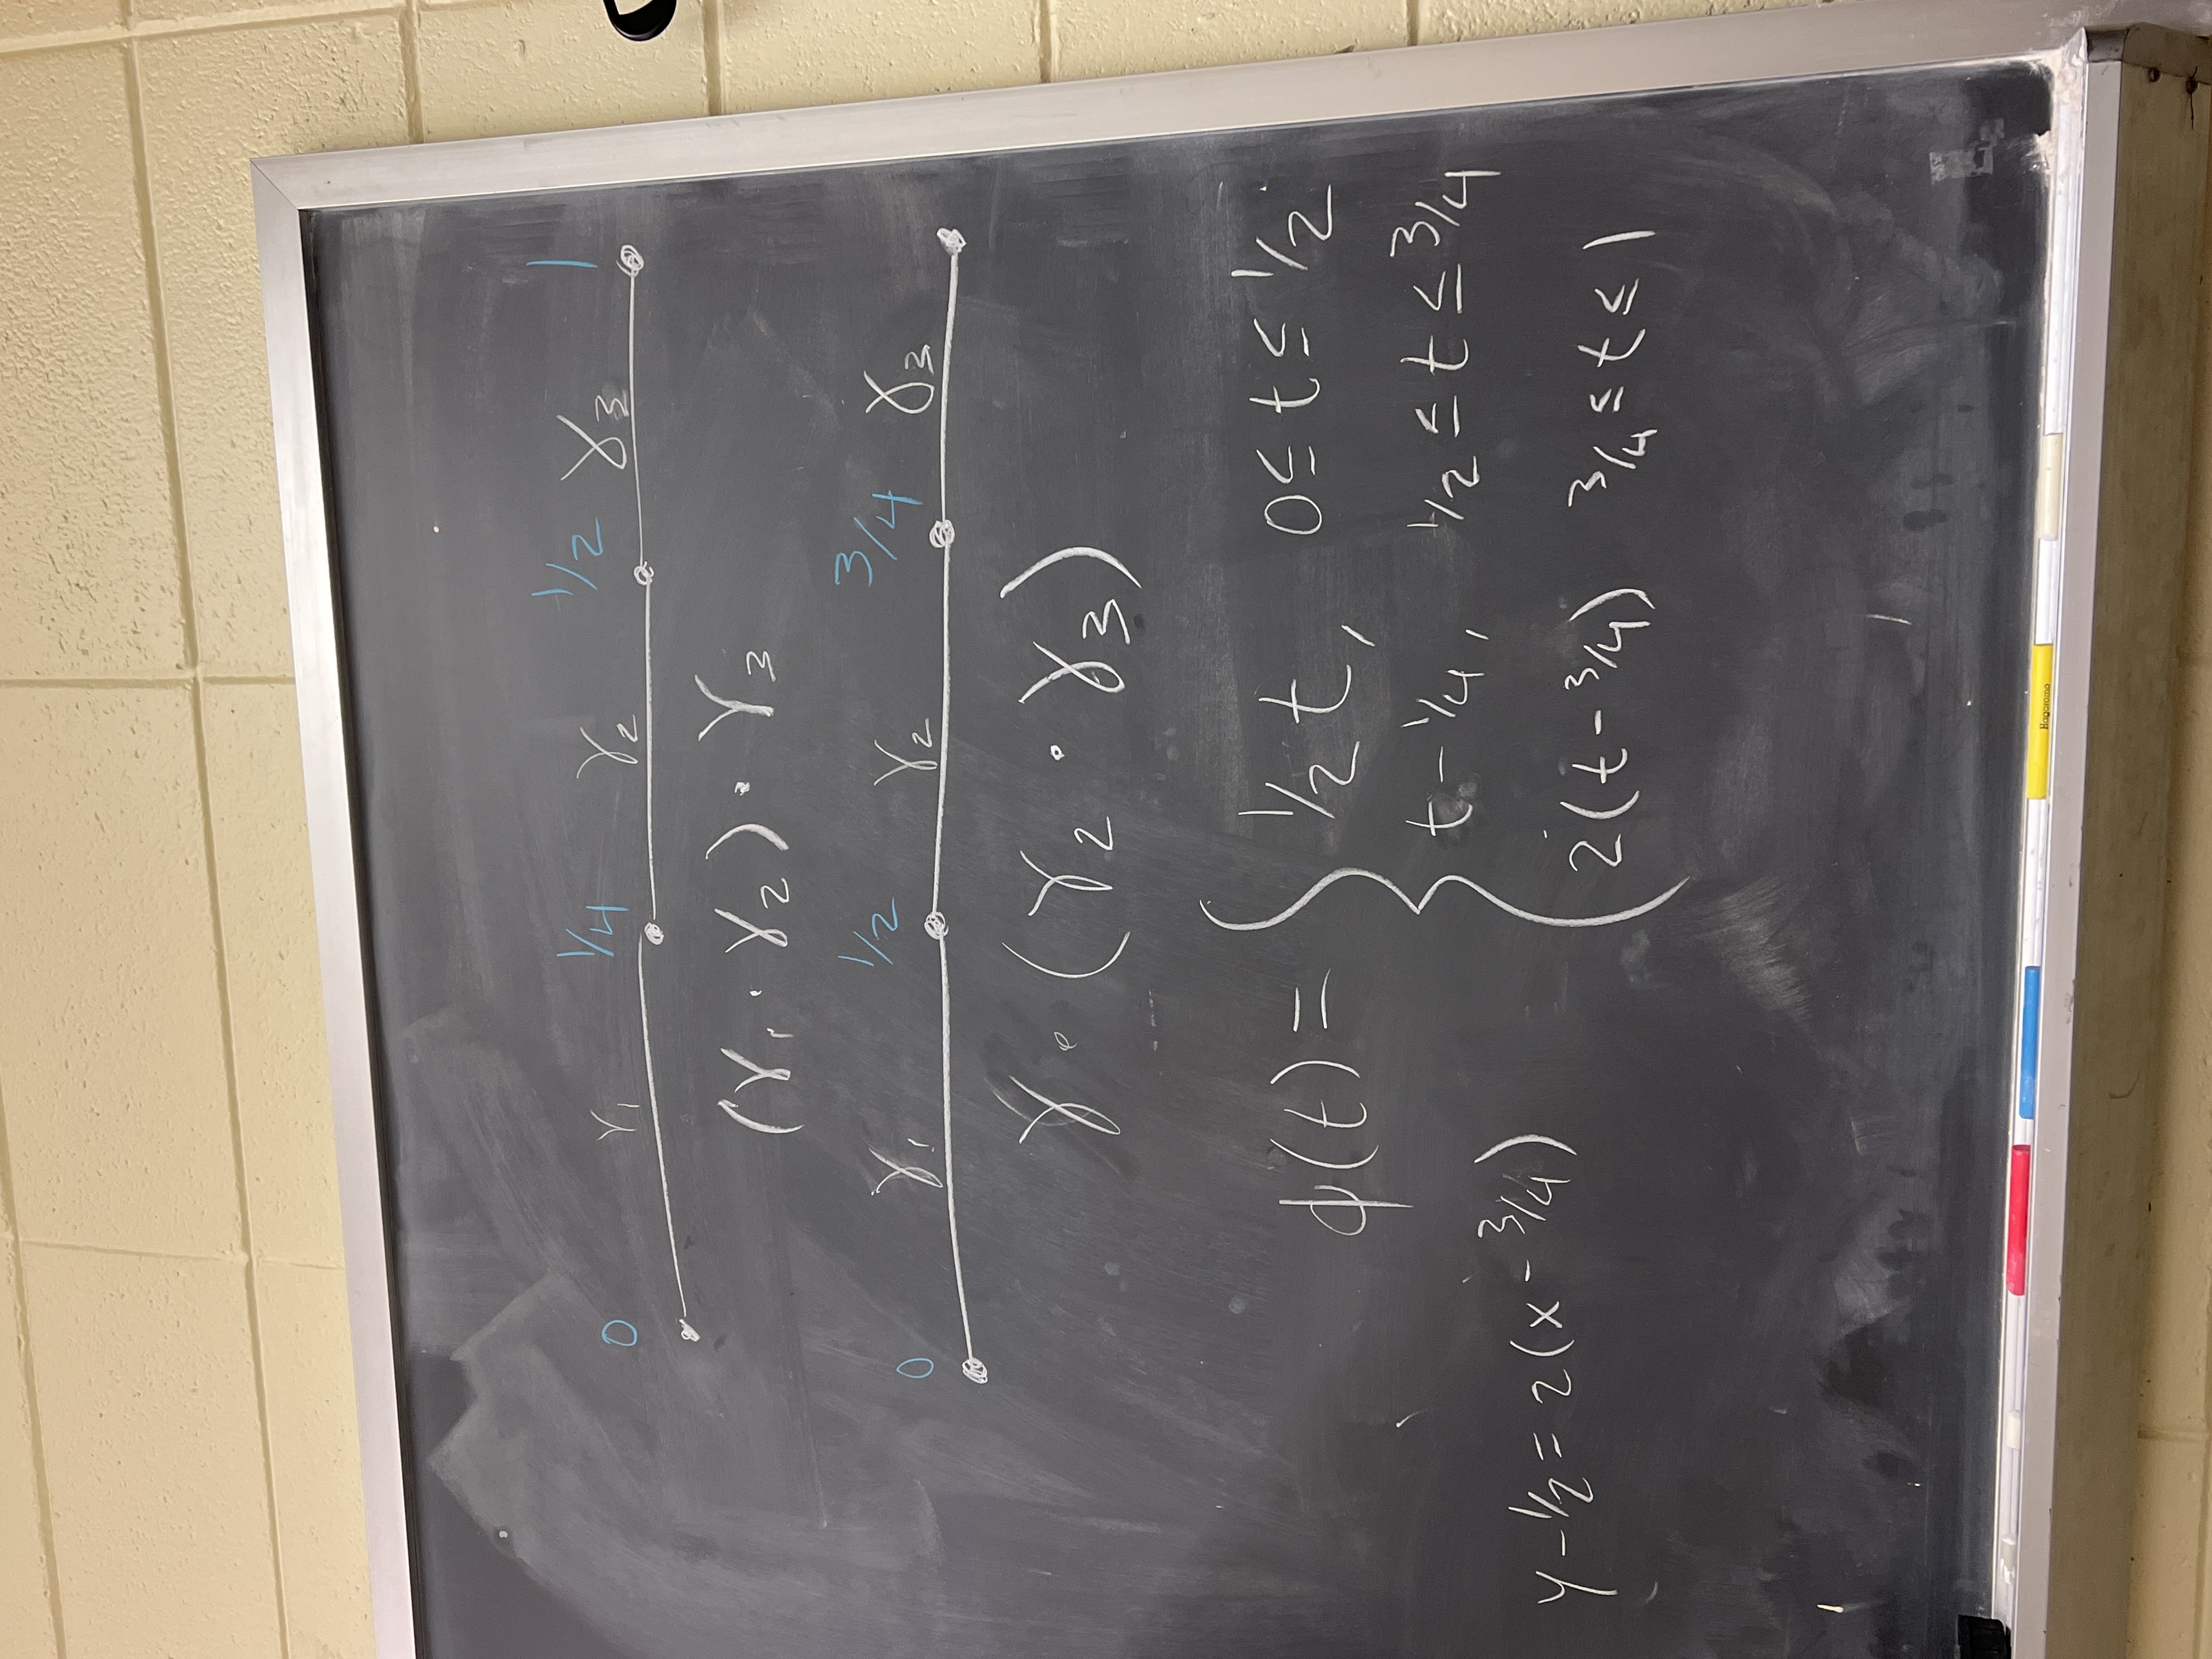 0 γ₁ 1/4 γ₂ 1/2 γ₃ 1
(γ₁ · γ₂) · γ₃
0 γ₁ 1/2 γ₂ 3/4 γ₃
γ · (γ₂ · γ₃)
ϕ(t) = { 1/2 t, 0 ≤ t ≤ 1/2
t - 1/4, 1/2 ≤ t ≤ 3/4
y - 1/2 = 2(x - 3/4)
2(t - 3/4) 3/4 ≤ t ≤ 1
Hagoromo